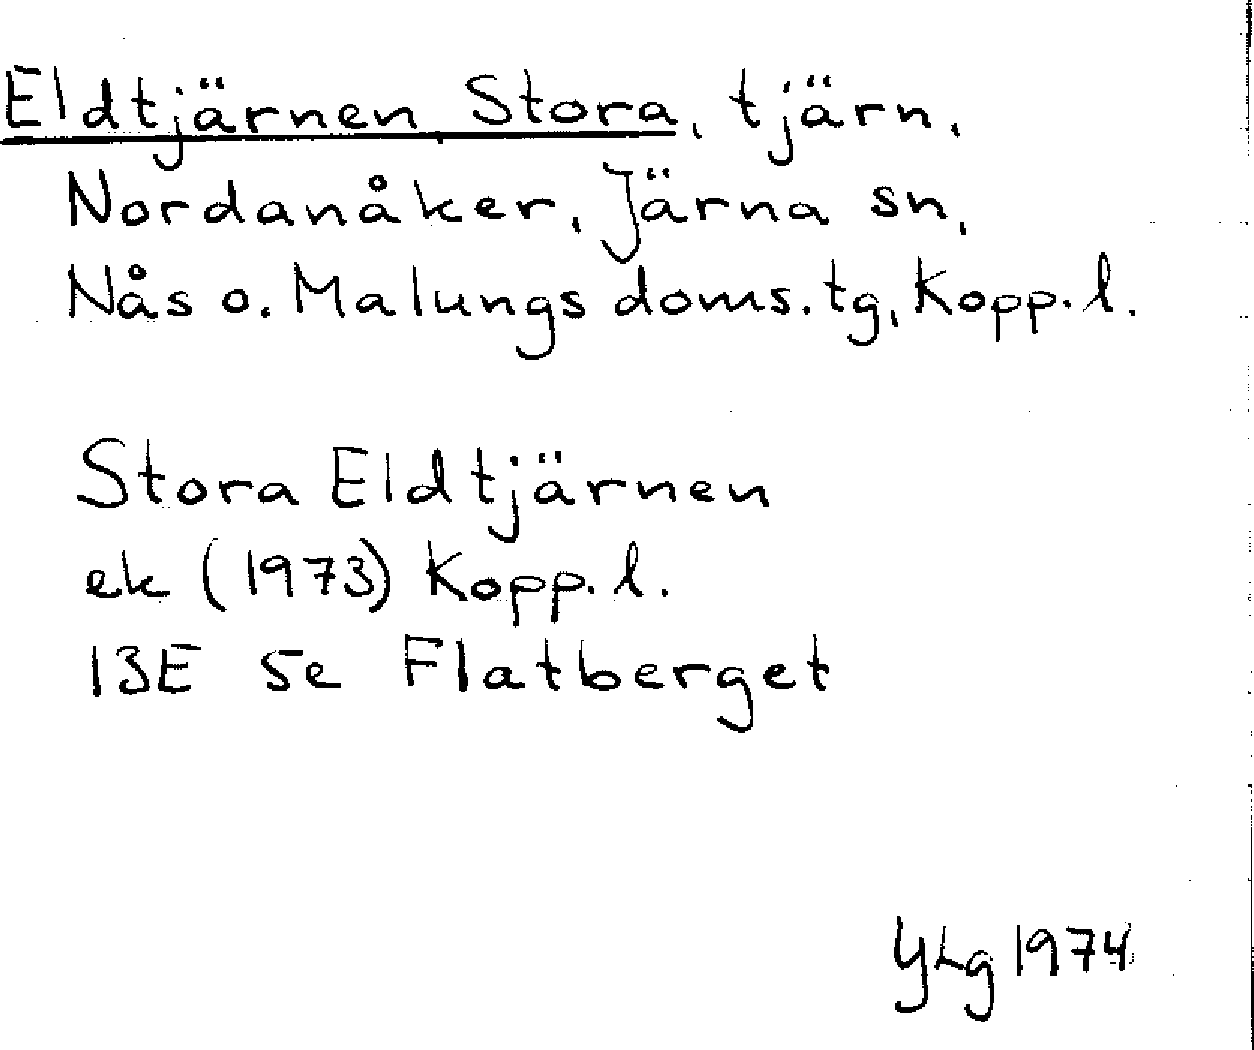 Eldtjärnen, Stora, tjärn,
Nordanåker, Järna sn,
Nås o. Malungs doms.tg, Kopp.l.
Stora Eldtjärnen
ek (1973) Kopp.l.
13E 5e Flatberget
YLg 1974